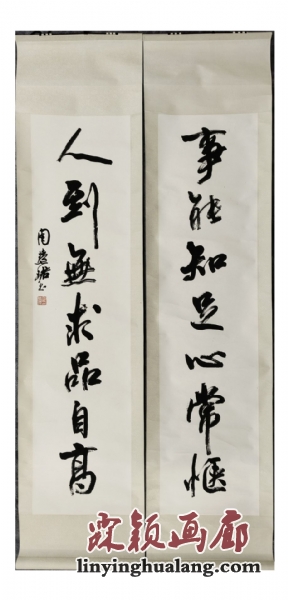 事能知足心常惬
人到無求品自高
霖颖画廊
linyinghualang.com